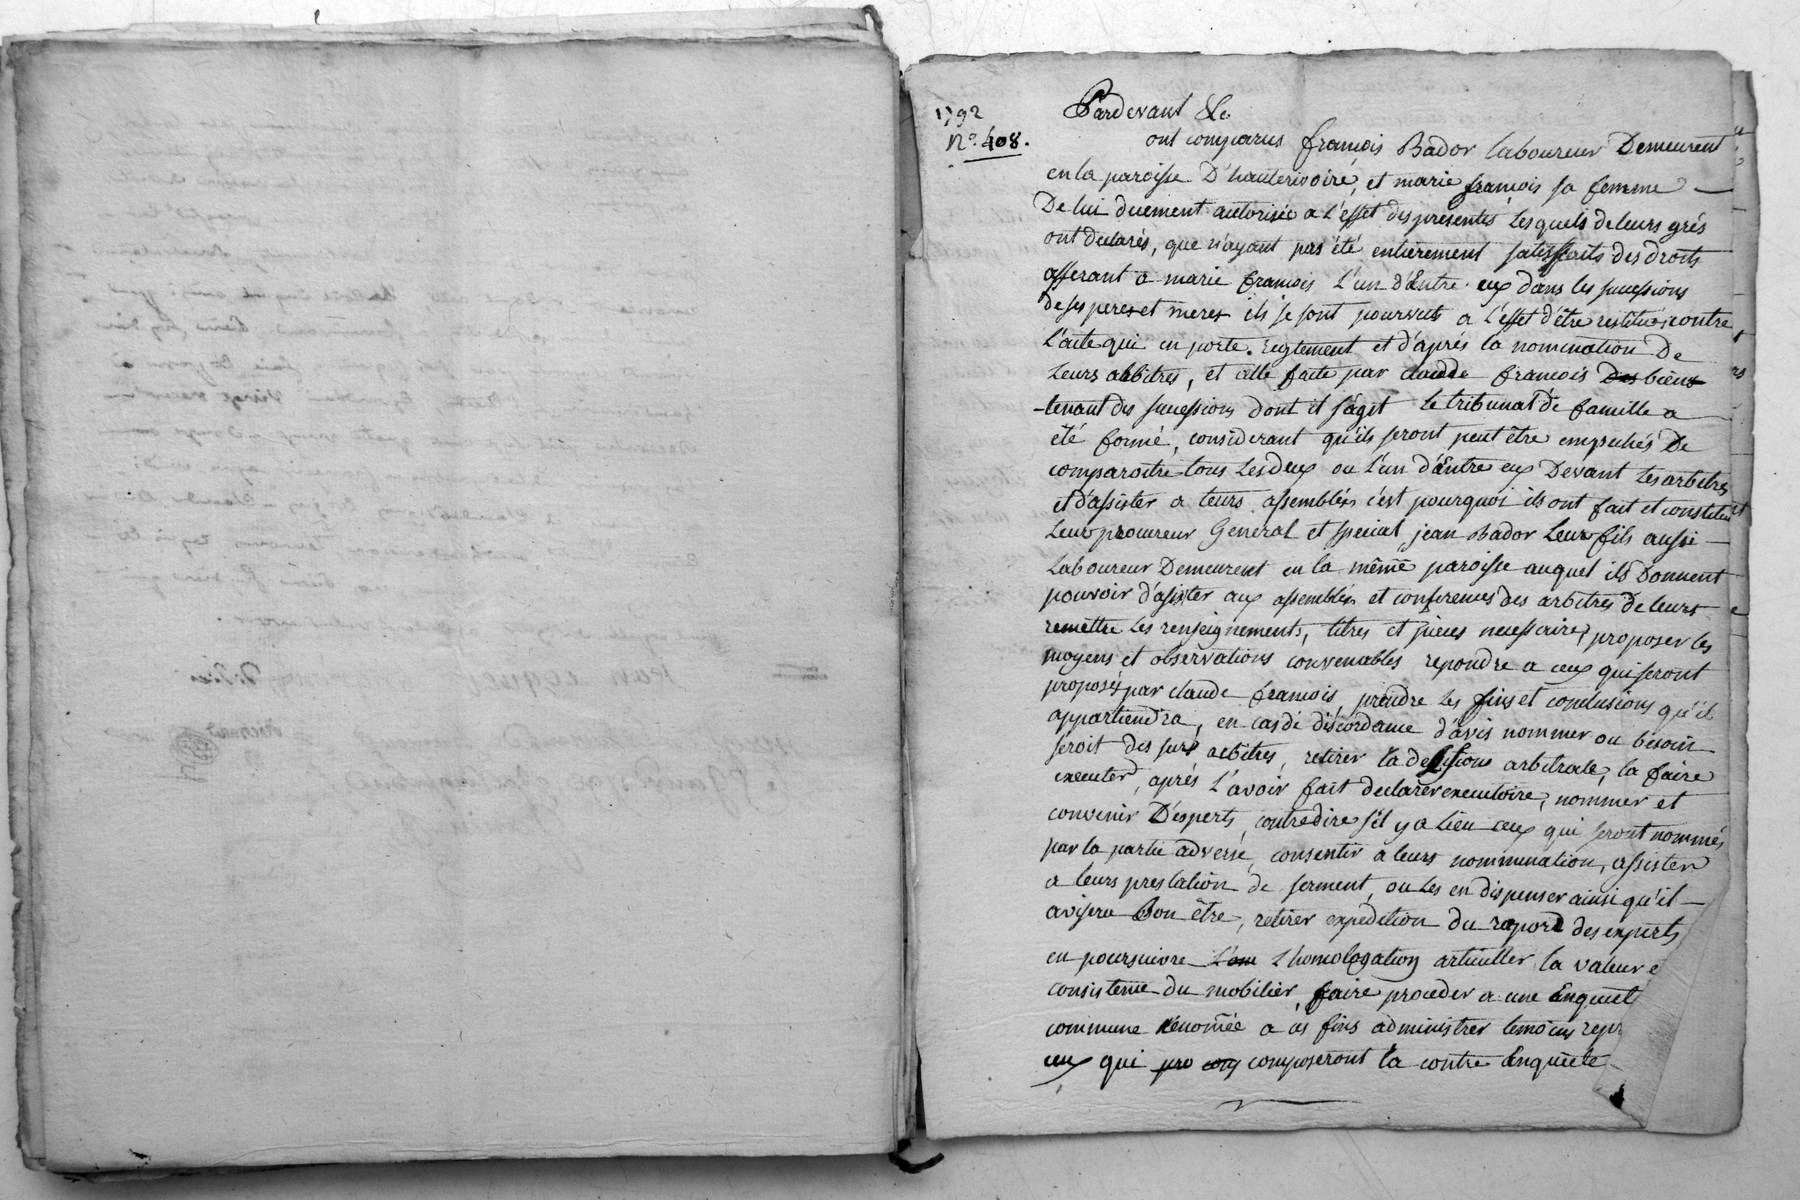 1792
N.° 408.
Pardevant &c.
ont comparus francois Bador laboureur Demeurent
en la paroisse D'hauterivoire, et marie francois sa femme
De lui duement autorisée a L'effet des presentes Lesquels de leurs grés
ont declarés, que n'ayant pas été entièrement satisfaits des droits
afferant a marie francois L'un d'Entre eux dans les successions
de ses peres et meres ils se sont pourvuts a l'effet d'être restitués contre
L'acte qui en porte reglement et d'après la nomination De
Leurs arbitres, et celle faite par claude francois Des biens
-tenant des successions dont il s'agit Le tribunat de famille a
été formé, considerant qu'ils seront peut être empechés De
comparoitre tous Les deux ou L'un d'Entre eux Devant Les arbitres
et d'assister a leurs assemblées c'est pourquoi ils ont fait et constitué
Leur procureur General et special jean Bador Leur fils aussi
Laboureur Demeurent en la même paroisse auquel ils Donnent
pouvoir d'assister aux assemblées et conferences des arbitres de leurs
remettre Les renseignements, titres et pieces necessaires, proposer les
moyens et observations convenables repondre a ceux qui seront
proposés par claude francois, prendre Les fins et conclusions qu'il
appartiendra, en cas de discordance d'avis nommer ou besoin
seroit des surs arbitres, retirer la decision arbitrale, la faire
executer, après L'avoir fait declarer executoire, nommer et
convenir D'experts, contredire s'il y a Lieu ceux qui seront nommés
par la partie adverse, consentir a leurs nommination, assister
a leurs prestation de serment, ou Les en dispenser ainsi qu'il
avisera Bon être, retirer expedition du raport des experts
en poursuivre L'om L'homologation articuller la valeur e
consistence du mobilier, faire proceder a une Enquete
commune renomée a ces fins administrer temoins repr
ceux qui pro com composeront la contre Enquete